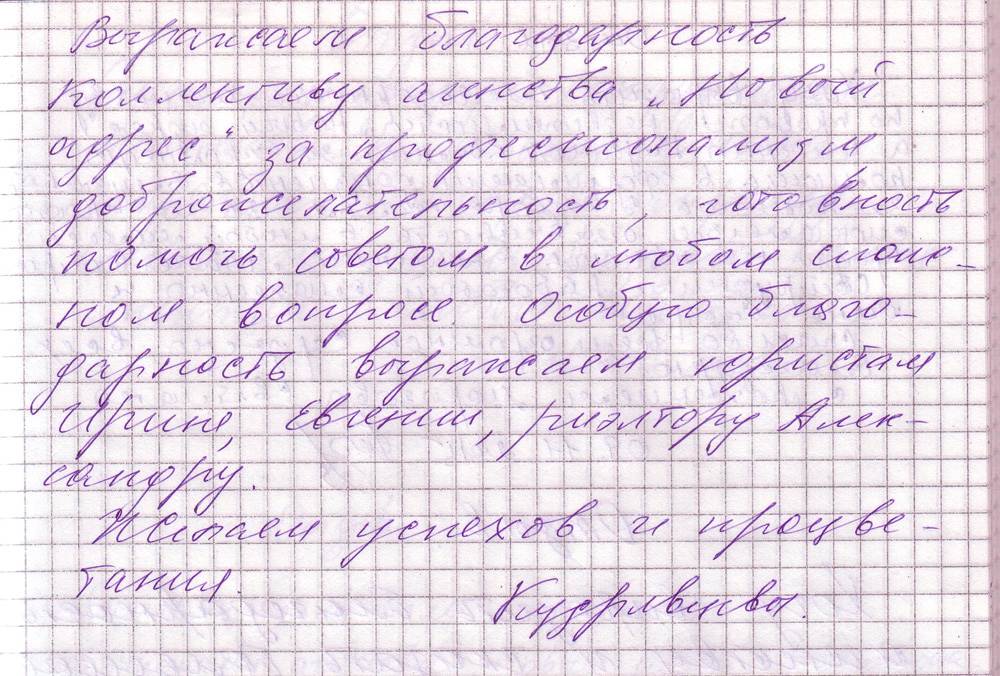 Выражаем благодарность
коллективу агенства „Новый
адрес“ за профессионализм,
доброжелательность, готовность
помочь советом в любом слож-
ном вопросе. Особую благо-
дарность выражаем юристам
Ирине, Евгении, риэлтору Алек-
сандру.
Желаем успехов и процве-
тания.
Кудрявцевы.